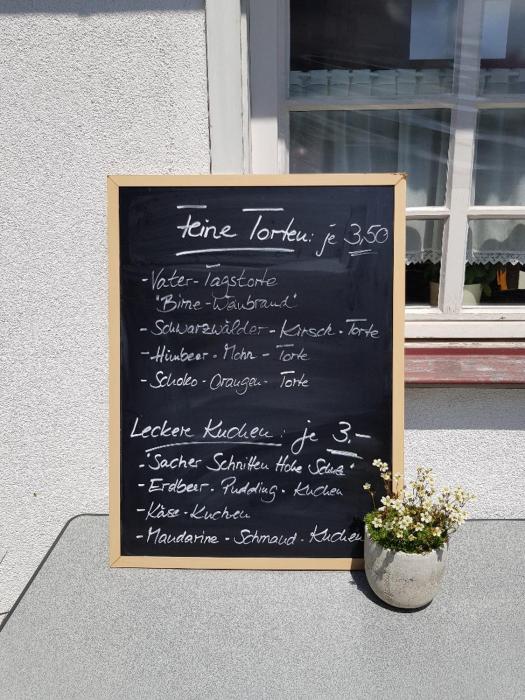 Feine Torten: je 3,50
- Vater-Tagstorte
"Birne-Weinbrand"
- Schwarzwälder-Kirsch-Torte
- Himbeer-Mohn-Torte
- Schoko-Orangen-Torte
Leckere Kuchen: je 3,-
- "Sacher Schnitten Hohe
- Erdbeer-Pudding-Kuchen
- Käse-Kuchen
- Mandarine-Schmand-Kuchen